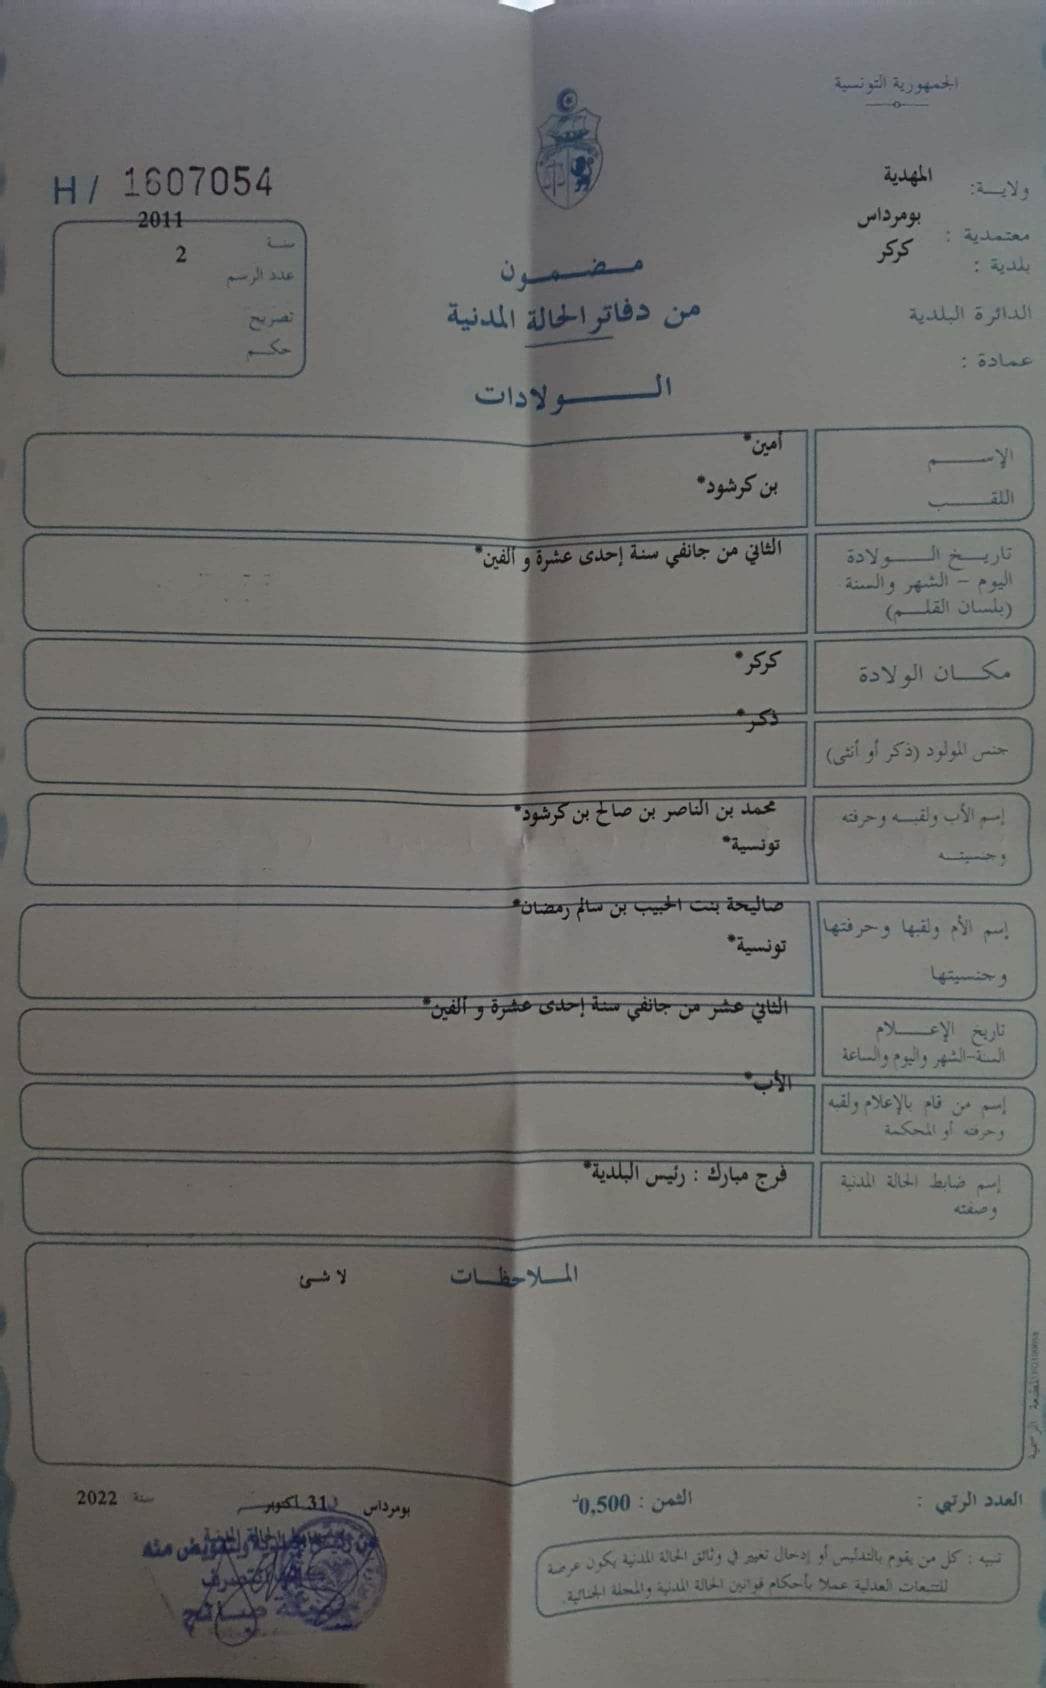 الجمهورية التونسية
ولايـــة: المهدية
معتمدية : بومرداس
بلدية : كركر
الدائرة البلدية
عمادة :
H / 1607054
سنـة 2011
عدد الرسم 2
تصريح
حكـم
مـضـمـون
من دفاتر الحالة المدنية
الـــولادات
الإســـم أمين*
اللقـــب بن كرشود*
تاريـخ الـــولادة الثاني من جانفي سنة إحدى عشرة و ألفين*
اليوم - الشهر والسنة
(بلسان القلـم)
مكـــان الولادة كركر*
جنس المولود (ذكر أو أنثى) ذكر*
إسم الأب ولقبـه وحرفته محمد بن الناصر بن صالح بن كرشود*
وجنسيتـه تونسية*
إسم الأم ولقبها وحرفتها صاليحة بنت الحبيب بن سالم رمضان*
وجنسيتها تونسية*
تاريخ الإعـــلام الثاني عشر من جانفي سنة إحدى عشرة و ألفين*
السنة-الشهر واليوم والساعة
إسم من قام بالإعلام ولقبه الأب*
وحرفته أو المحكمة
إسم ضابط الحالة المدنية فرج مبارك : رئيس البلدية*
وصفته
المـلاحظـات لا شئ
العدد الرتبي : الثمن : 0,500د
بومرداس 31 أكتوبر سنة 2022
تنبيه : كل من يقوم بالتدليس أو إدخال تغيير في وثائق الحالة المدنية يكون عرضة
للتتبعات العدلية عملا بأحكام قوانين الحالة المدنية والمجلة الجنائية.